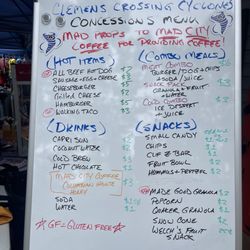 CLEMENS CROSSING CYCLONES
CONCESSIONS MENU
MAD PROPS TO MAD CITY
COFFEE FOR PROVIDING COFFEE!
HOT ITEMS
ALL BEEF HOT DOG $3
SAUSAGE + EGG + CHEESE
CHEESEBURGER
GRILLED CHEESE
HAMBURGER $5
WALKING TACO $3
COMBO MEALS
MEAT COMBO
BURGER / DOG + CHIPS
+ SODA / JUICE
SNACK PLATE
GRANOLA + FRUIT
+ WATER
COLD COMBO
ICE DESSERT
+ JUICE
DRINKS
CAPRI SUN
COCONUT WATER
COLD BREW
HOT CHOCOLATE $1
MAD CITY COFFEE
COLOMBIAN HOUSE
HONEY
SODA
WATER
SNACKS
SMALL CANDY
CHIPS
CLIF Z BAR
FRUIT BOWL
HUMMUS + PRETZEL
MAD GOOD GRANOLA $2
POPCORN $2
QUAKER GRANOLA $1
SNOW CONE $2
WELCH'S FRUIT
SNACK
GF = GLUTEN FREE